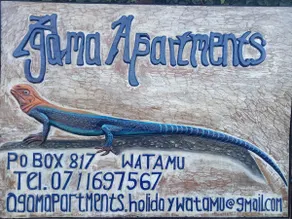 Agama Apartments
PO BOX 817 WATAMU
Tel. 0711697567
agamapartments.holidaywatamu@gmail.com